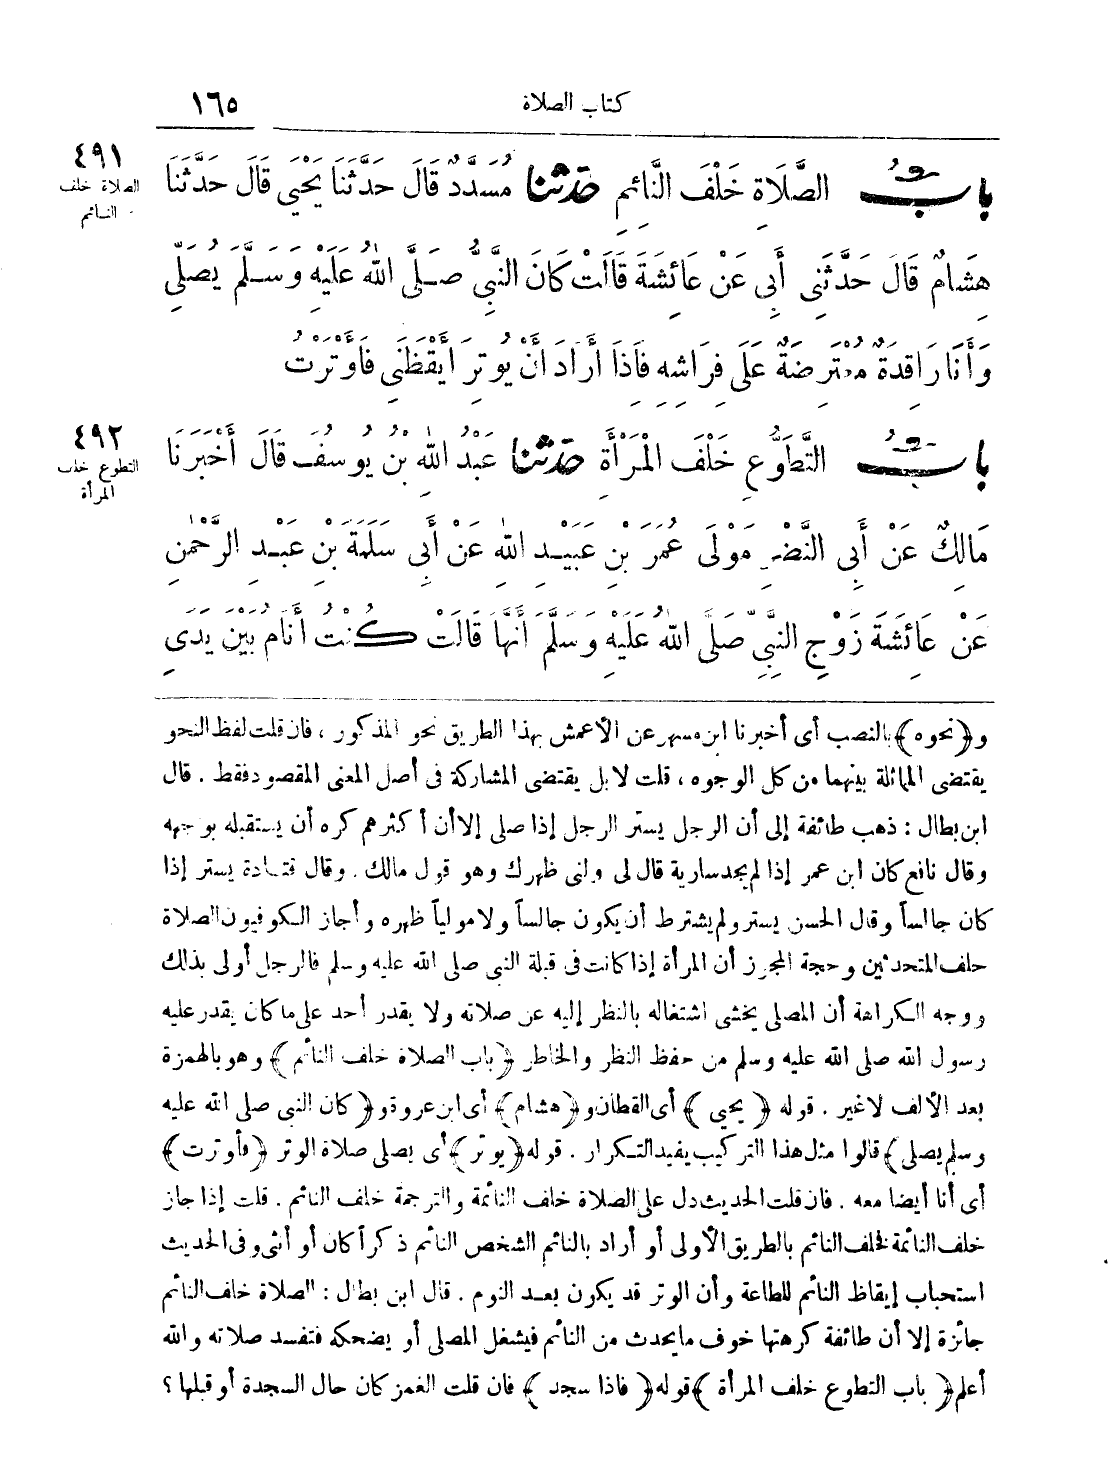 كتاب الصلاة ١٦٥
٤٩١
الصلاة خلف
النائم
بابُ الصَّلَاةِ خَلْفَ النَّائِمِ حدثنا مُسَدَّدٌ قَالَ حَدَّثَنَا يَحْيَى قَالَ حَدَّثَنَا
هِشَامٌ قَالَ حَدَّثَنِي أَبِي عَنْ عَائِشَةَ قَالَتْ كَانَ النَّبِيُّ صَلَّى اللهُ عَلَيْهِ وَسَلَّمَ يُصَلِّي
وَأَنَا رَاقِدَةٌ مُعْتَرِضَةٌ عَلَى فِرَاشِهِ فَاذَا أَرَادَ أَنْ يُوتِرَ أَيْقَظَنِي فَأَوْتَرْتُ
٤٩٢
التطوع خلف
المرأة
بابُ التَّطَوُّعِ خَلْفَ الْمَرْأَةِ حدثنا عَبْدُ اللهِ بْنُ يُوسُفَ قَالَ أَخْبَرَنَا
مَالِكٌ عَنْ أَبِي النَّضْرِ مَوْلَى عُمَرَ بْنِ عُبَيْدِ اللهِ عَنْ أَبِي سَلَمَةَ بْنِ عَبْدِ الرَّحْمٰنِ
عَنْ عَائِشَةَ زَوْجِ النَّبِيِّ صَلَّى اللهُ عَلَيْهِ وَسَلَّمَ أَنَّهَا قَالَتْ كُنْتُ أَنَامُ بَيْنَ يَدَيْ
و﴿نحوه﴾ بالنصب أى أخبرنا ابن مسهر عن الأعمش بهذا الطريق نحو المذكور ، فان قلت لفظ النحو
يقتضى المماثلة بينهما من كل الوجوه ، قلت لا بل يقتضى المشاركة فى أصل المعنى المقصود فقط . قال
ابن بطال : ذهب طائفة إلى أن الرجل يستر الرجل إذا صلى إلا أن أكثرهم كره أن يستقبله بوجهه
وقال نافع كان ابن عمر إذا لم يجد سارية قال لى ولنى ظهرك وهو قول مالك . وقال قتادة يستر إذا
كان جالساً وقال الحسن يستر ولم يشترط أن يكون جالساً ولا مولياً ظهره وأجاز الكوفيون الصلاة
خلف المتحدثين وحجة المجوز أن المرأة إذا كانت فى قبلة النبى صلى الله عليه وسلم فالرجل أولى بذلك
ووجه الكراهة أن المصلى يخشى اشتغاله بالنظر إليه عن صلاته ولا يقدر أحد على ما كان يقدر عليه
رسول الله صلى الله عليه وسلم من حفظ النظر والخاطر ﴿باب الصلاة خلف النائم﴾ وهو بالهمزة
بعد الألف لا غير . قوله ﴿يحيى﴾ أى القطان و﴿هشام﴾ أى ابن عروة و﴿كان النبى صلى الله عليه
وسلم يصلى﴾ قالوا مثل هذا التركيب يفيد التكرار . قوله ﴿يوتر﴾ أى يصلى صلاة الوتر ﴿فأوترت﴾
أى أنا أيضا معه . فان قلت الحديث دل على الصلاة خلف النائمة والترجمة خلف النائم . قلت إذا جاز
خلف النائمة فخلف النائم بالطريق الأولى أو أراد بالنائم الشخص النائم ذكراً كان أو أنثى وفى الحديث
استحباب إيقاظ النائم للطاعة وأن الوتر قد يكون بعد النوم . قال ابن بطال : الصلاة خلف النائم
جائزة إلا أن طائفة كرهتها خوف ما يحدث من النائم فيشغل المصلى أو يضحكه فتفسد صلاته والله
أعلم ﴿باب التطوع خلف المرأة﴾ قوله ﴿فاذا سجد﴾ فان قلت الغمز كان حال السجدة أو قبلها ؟